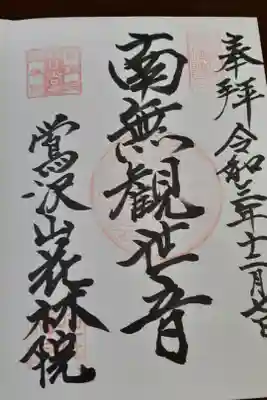 奉拝 令和三年十二月
南無観世音
鴬沢山花林院